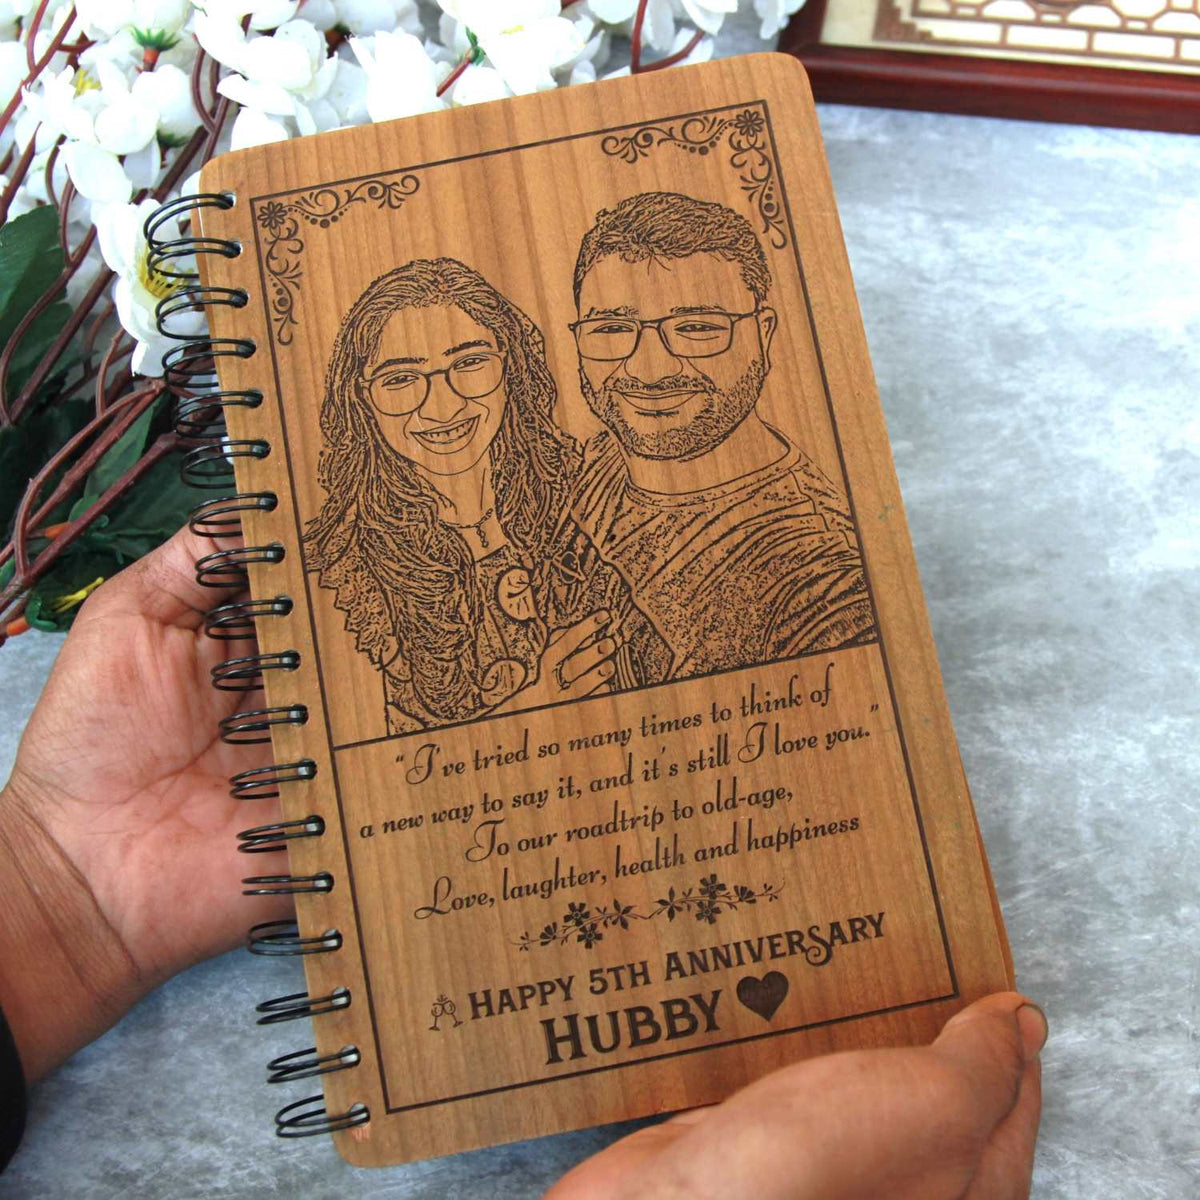 "I've tried so many times to think of
a new way to say it, and it's still I love you."
To our roadtrip to old-age,
Love, laughter, health and happiness
HAPPY 5TH ANNIVERSARY
HUBBY